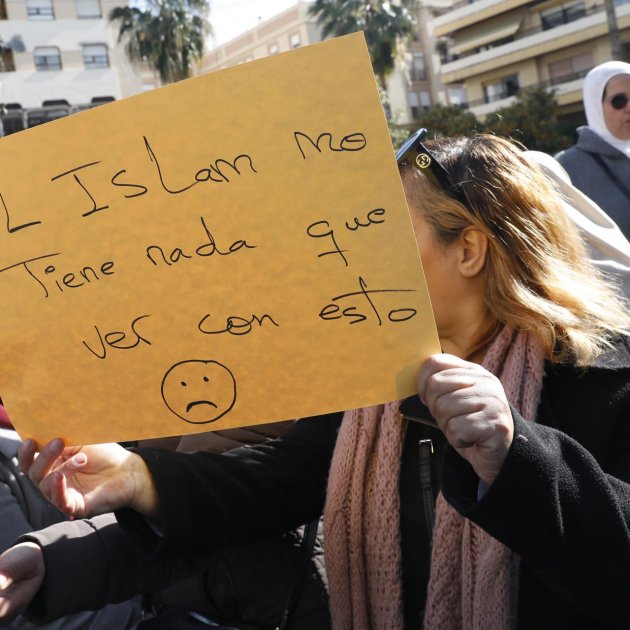 L Islam no
Tiene nada que
ver con esto